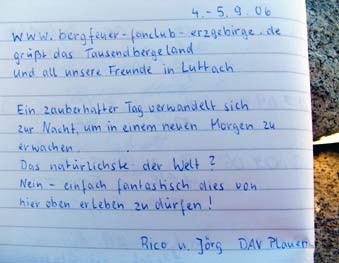 4.-5.9.06
www.bergfeuer-fanclub-erzgebirge.de
grüßt das Tausendbergeland
und all unsere Freunde in Luttach
Ein zauberhafter Tag verwandelt sich
zur Nacht, um in einem neuen Morgen zu
erwachen.
Das natürlichste der Welt?
Nein - einfach fantastisch dies von
hier oben erleben zu dürfen!
Rico u. Jörg DAV Plauen